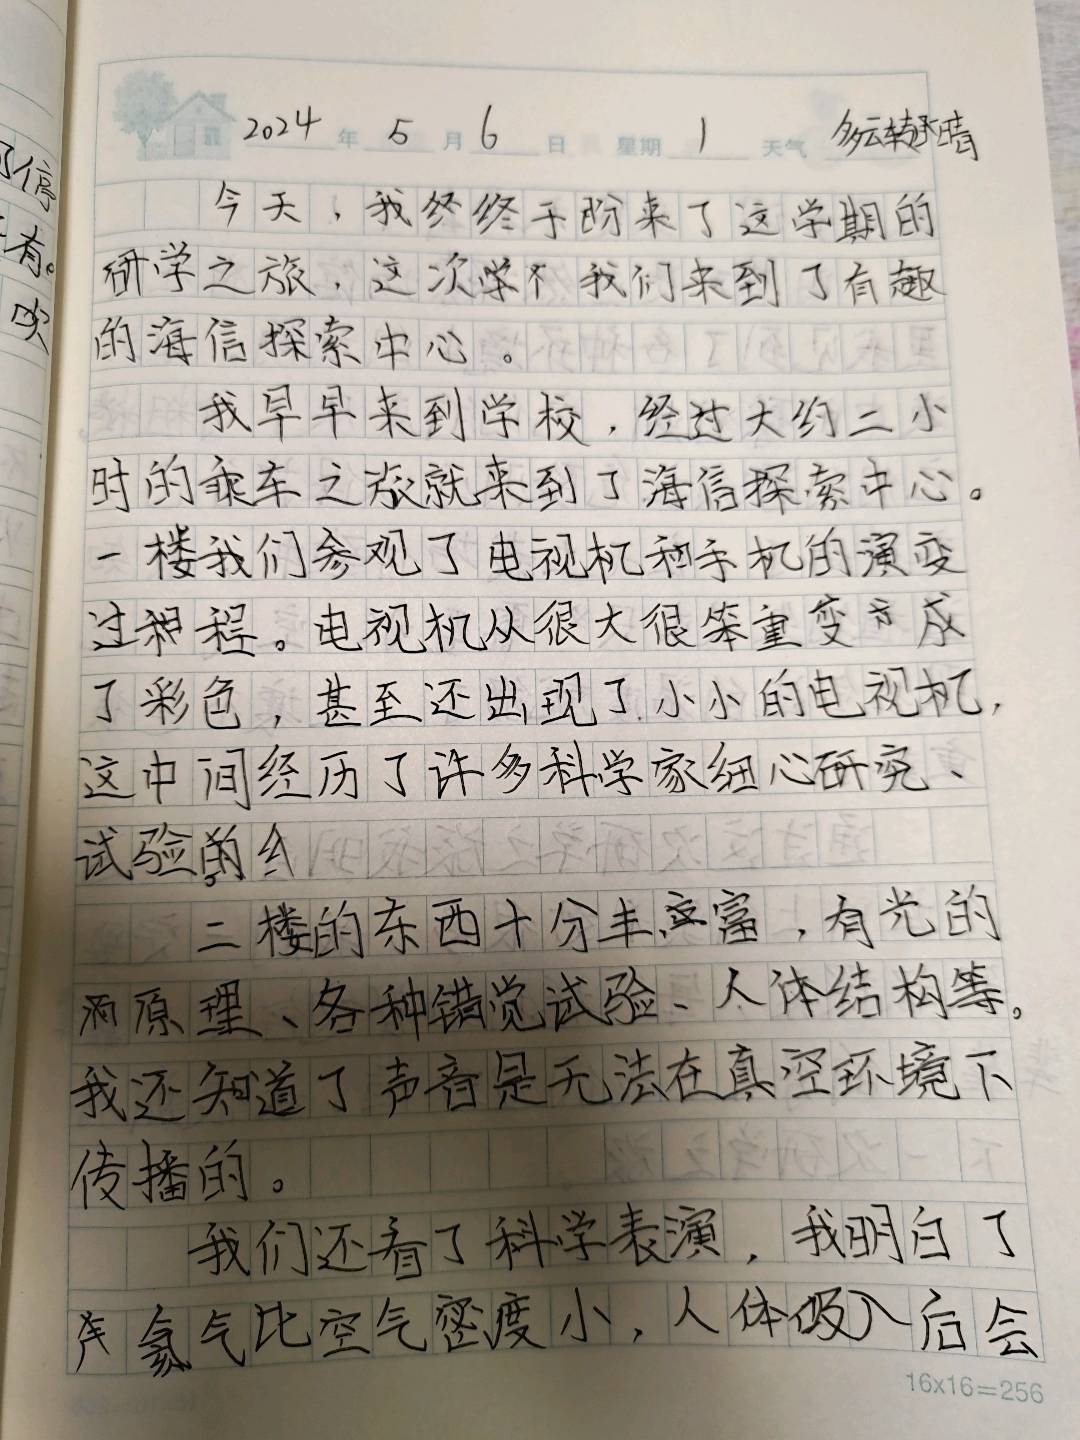 那停
有。
吹
2024年5月6日 星期1 天气 多云转晴
今天，我终终于盼来了这学期的
研学之旅，这次学不我们来到了有趣
的海信探索中心。
我早早来到学校，经过大约二小
时的乘车之旅就来到了海信探索中心。
一楼我们参观了电视机和手机的演变
过程。电视机从很大很笨重变成
了彩色，甚至还出现了小小的电视机，
这中间经历了许多科学家细心研究、
试验的
二楼的东西十分丰富，有光的
原理、各种错觉试验、人体结构等。
我还知道了声音是无法在真空环境下
传播的。
我们还看了科学表演，我明白了
氦气比空气密度小，人体吸入后会
16x16=256